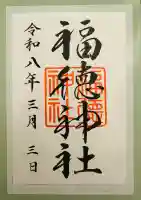 福徳神社
令和八年三月三日